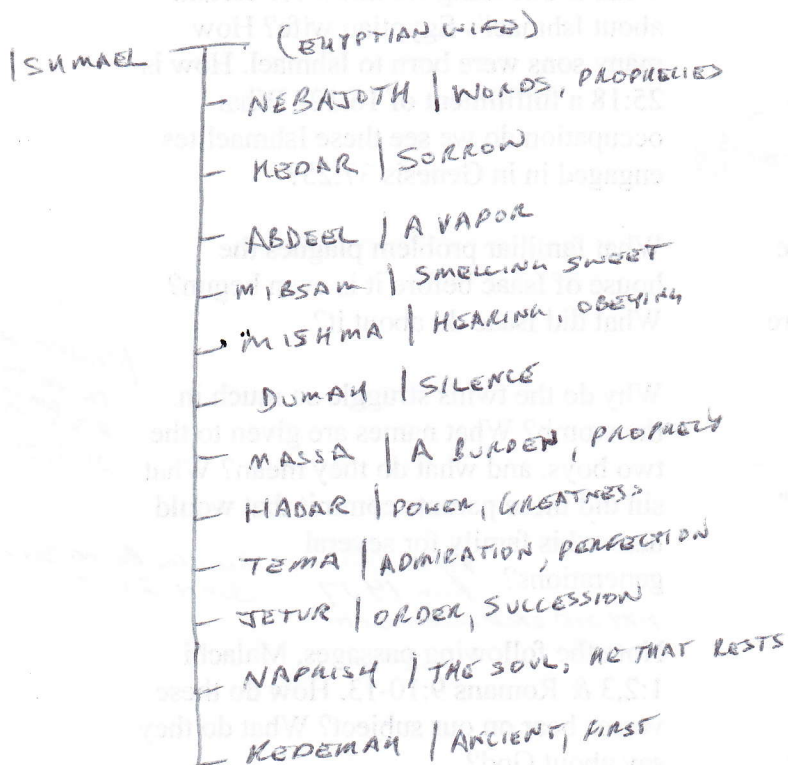 ISHMAEL (EGYPTIAN WIFE)
NEBAJOTH | WORDS, PROPHECIES
KEDAR | SORROW
ABDEEL | A VAPOR
MIBSAM | SMELLING SWEET
MISHMA | HEARING, OBEYING
DUMAH | SILENCE
MASSA | A BURDEN, PROPHECY
HADAR | POWER, GREATNESS
TEMA | ADMIRATION, PERFECTION
JETUR | ORDER, SUCCESSION
NAPHISH | THE SOUL, HE THAT RESTS
KEDEMAH | ANCIENT, FIRST